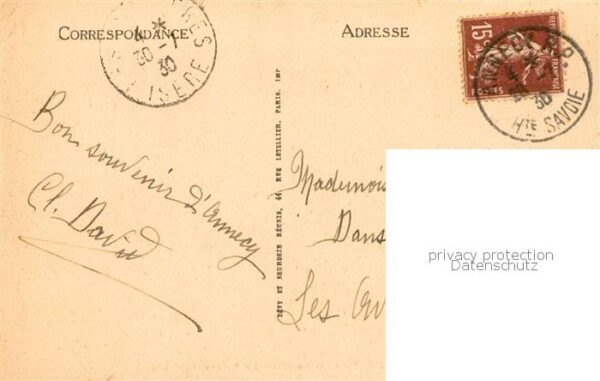 CORRESPONDANCE
ADRESSE
4 *
30 -1
30
ISÈRE
15c
POSTES
ANNECY R.P.
4
30
HTE SAVOIE
Bon souvenir d'Annecy
Cl. David
LÉVY ET NEURDEIN RÉUNIS, 44, RUE LETELLIER, PARIS. IMP
Mademois
Dans
Les Av
privacy protection
Datenschutz